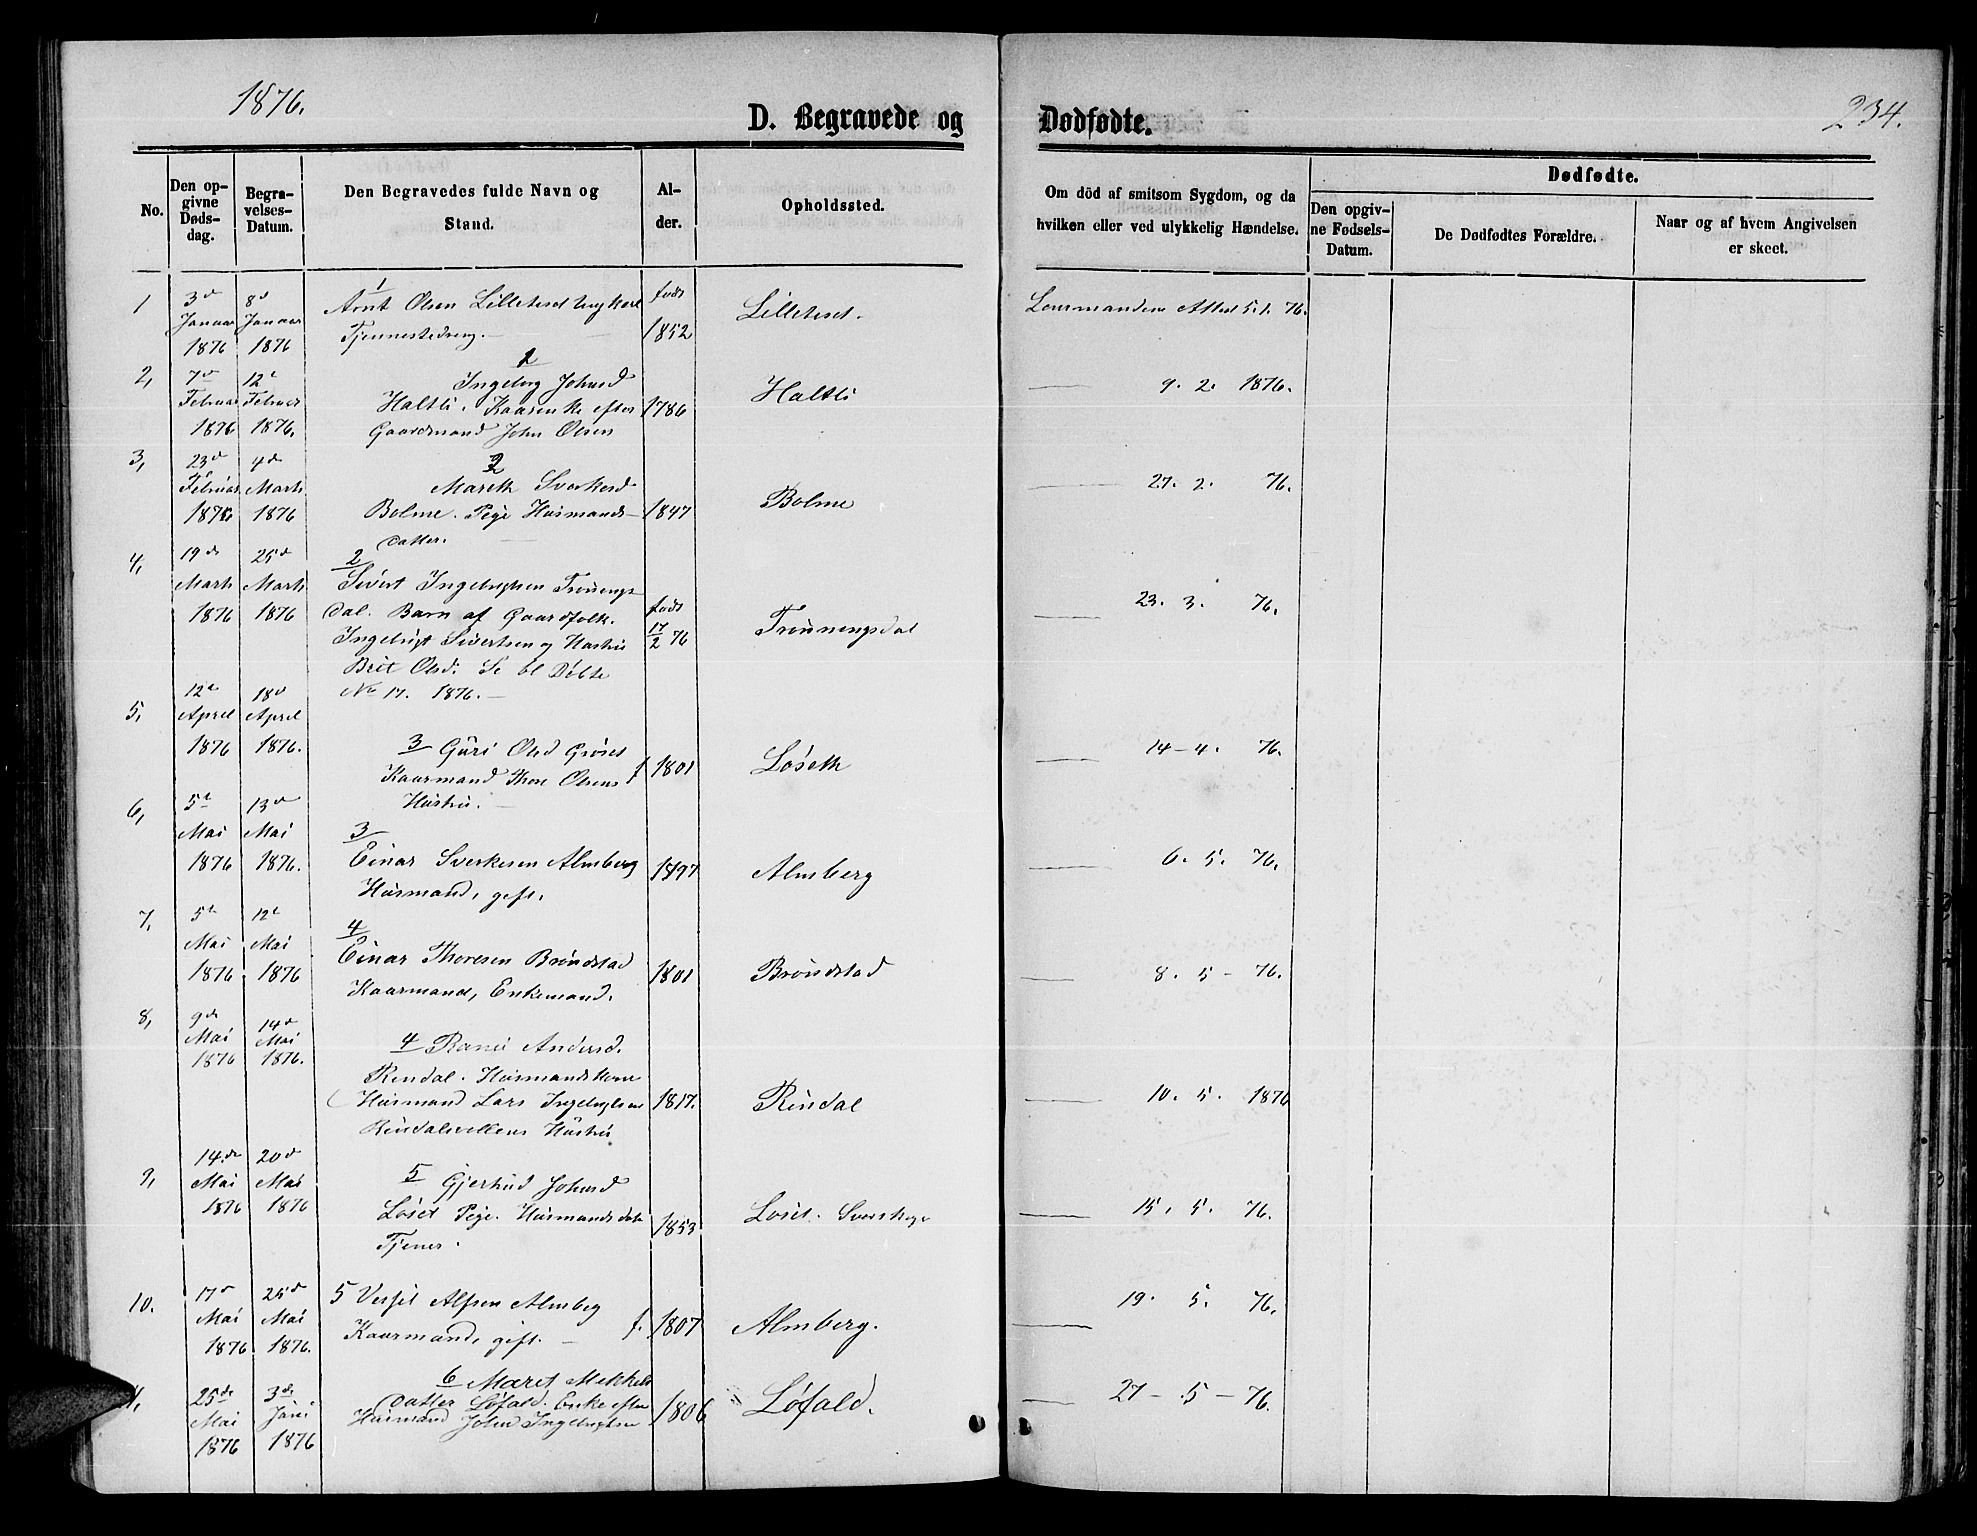 1876.
D. Begravede og Dødfødte.
234.
No.
Den opgivne Døds-dag.
Begravelses-Datum.
Den Begravedes fulde Navn og Stand.
Alder.
Opholdssted.
Om död af smitsom Sygdom, og da hvilken eller ved ulykkelig Hændelse.
Dødfødte.
Den opgivne Fødsels-Datum.
De Dødfødtes Forældre.
Naar og af hvem Angivelsen er skeet.
1
3d Januar 1876
8d Januar 1876
1
Arnt Olsen Lilleteset Ungkarl
Tjenestedreng.
født 1852
Lilleteset.
Lensmandens Attest 5. 1. 76.
2,
7d Februar 1876
12t Februar 1876.
1
Ingebrg Johnsd
Haltli. Kaarenke efter
Gaardmand John Olsen
1786
Haltli
9. 2. 1876.
3,
23d Februar 1876
4d Marts 1876
2
Mareth Sverkersd
Bolme. Pige Husmands-
datter.
1847
Bolme
27. 2. 76.
4,
19de Marts 1876
25d Marts 1876
2
Sivert Ingebrigtsen Trønnings
dal. Barn af Gaardfolk.
Ingebrigt Sivertsen og Hustru
Brit Olsd. Se bl Døbte
No 17. 1876.
født 17/2 76
Trønningsdal
23. 3. 76.
5,
12t April 1876
18d April 1876.
3 Guri Olsd Grøset
Kaarmand Thore Olsens
Hustru.
f 1801
Løseth
14-4. 76.
6,
5t Mai 1876
13d Mai 1876.
3
Einar Sverkesen Almberg
Husmand, gift.
1797
Almberg
6. 5. 76.
7,
5t Mai 1876.
12t Mai 1876
4
Einar Thoresen Brøndstad
Kaarmand, Enkemand.
1801
Brøndstad
8. 5 - 76.
8,
9de Mai 1876
14d Mai 1876.
4 Andersd.
Rindal. Husmandskone
Husmand Lars Ingebrigtsen
Hustru
1817.
Rindal
10. 5. 1876
9,
14de Mai 1876
20d Mai 1876
5 Gjertrud Johnsd
Løset Pige. Husmandsdatr
Tjener.
1853
Løset.
15. 5. 76.
10.
17d Mai 1876
25d Mai 1876.
5 Alfsen Almberg
Kaarmand, gift.
f. 1807
Almberg.
19. 5. 76.
25de Mai 1876
3de Juni 1876
6 Maret Mekkels
datter Løfald. Enke efter
Husmand John Ingebrigtsen
1806
Løfald.
27 - 5 - 76.